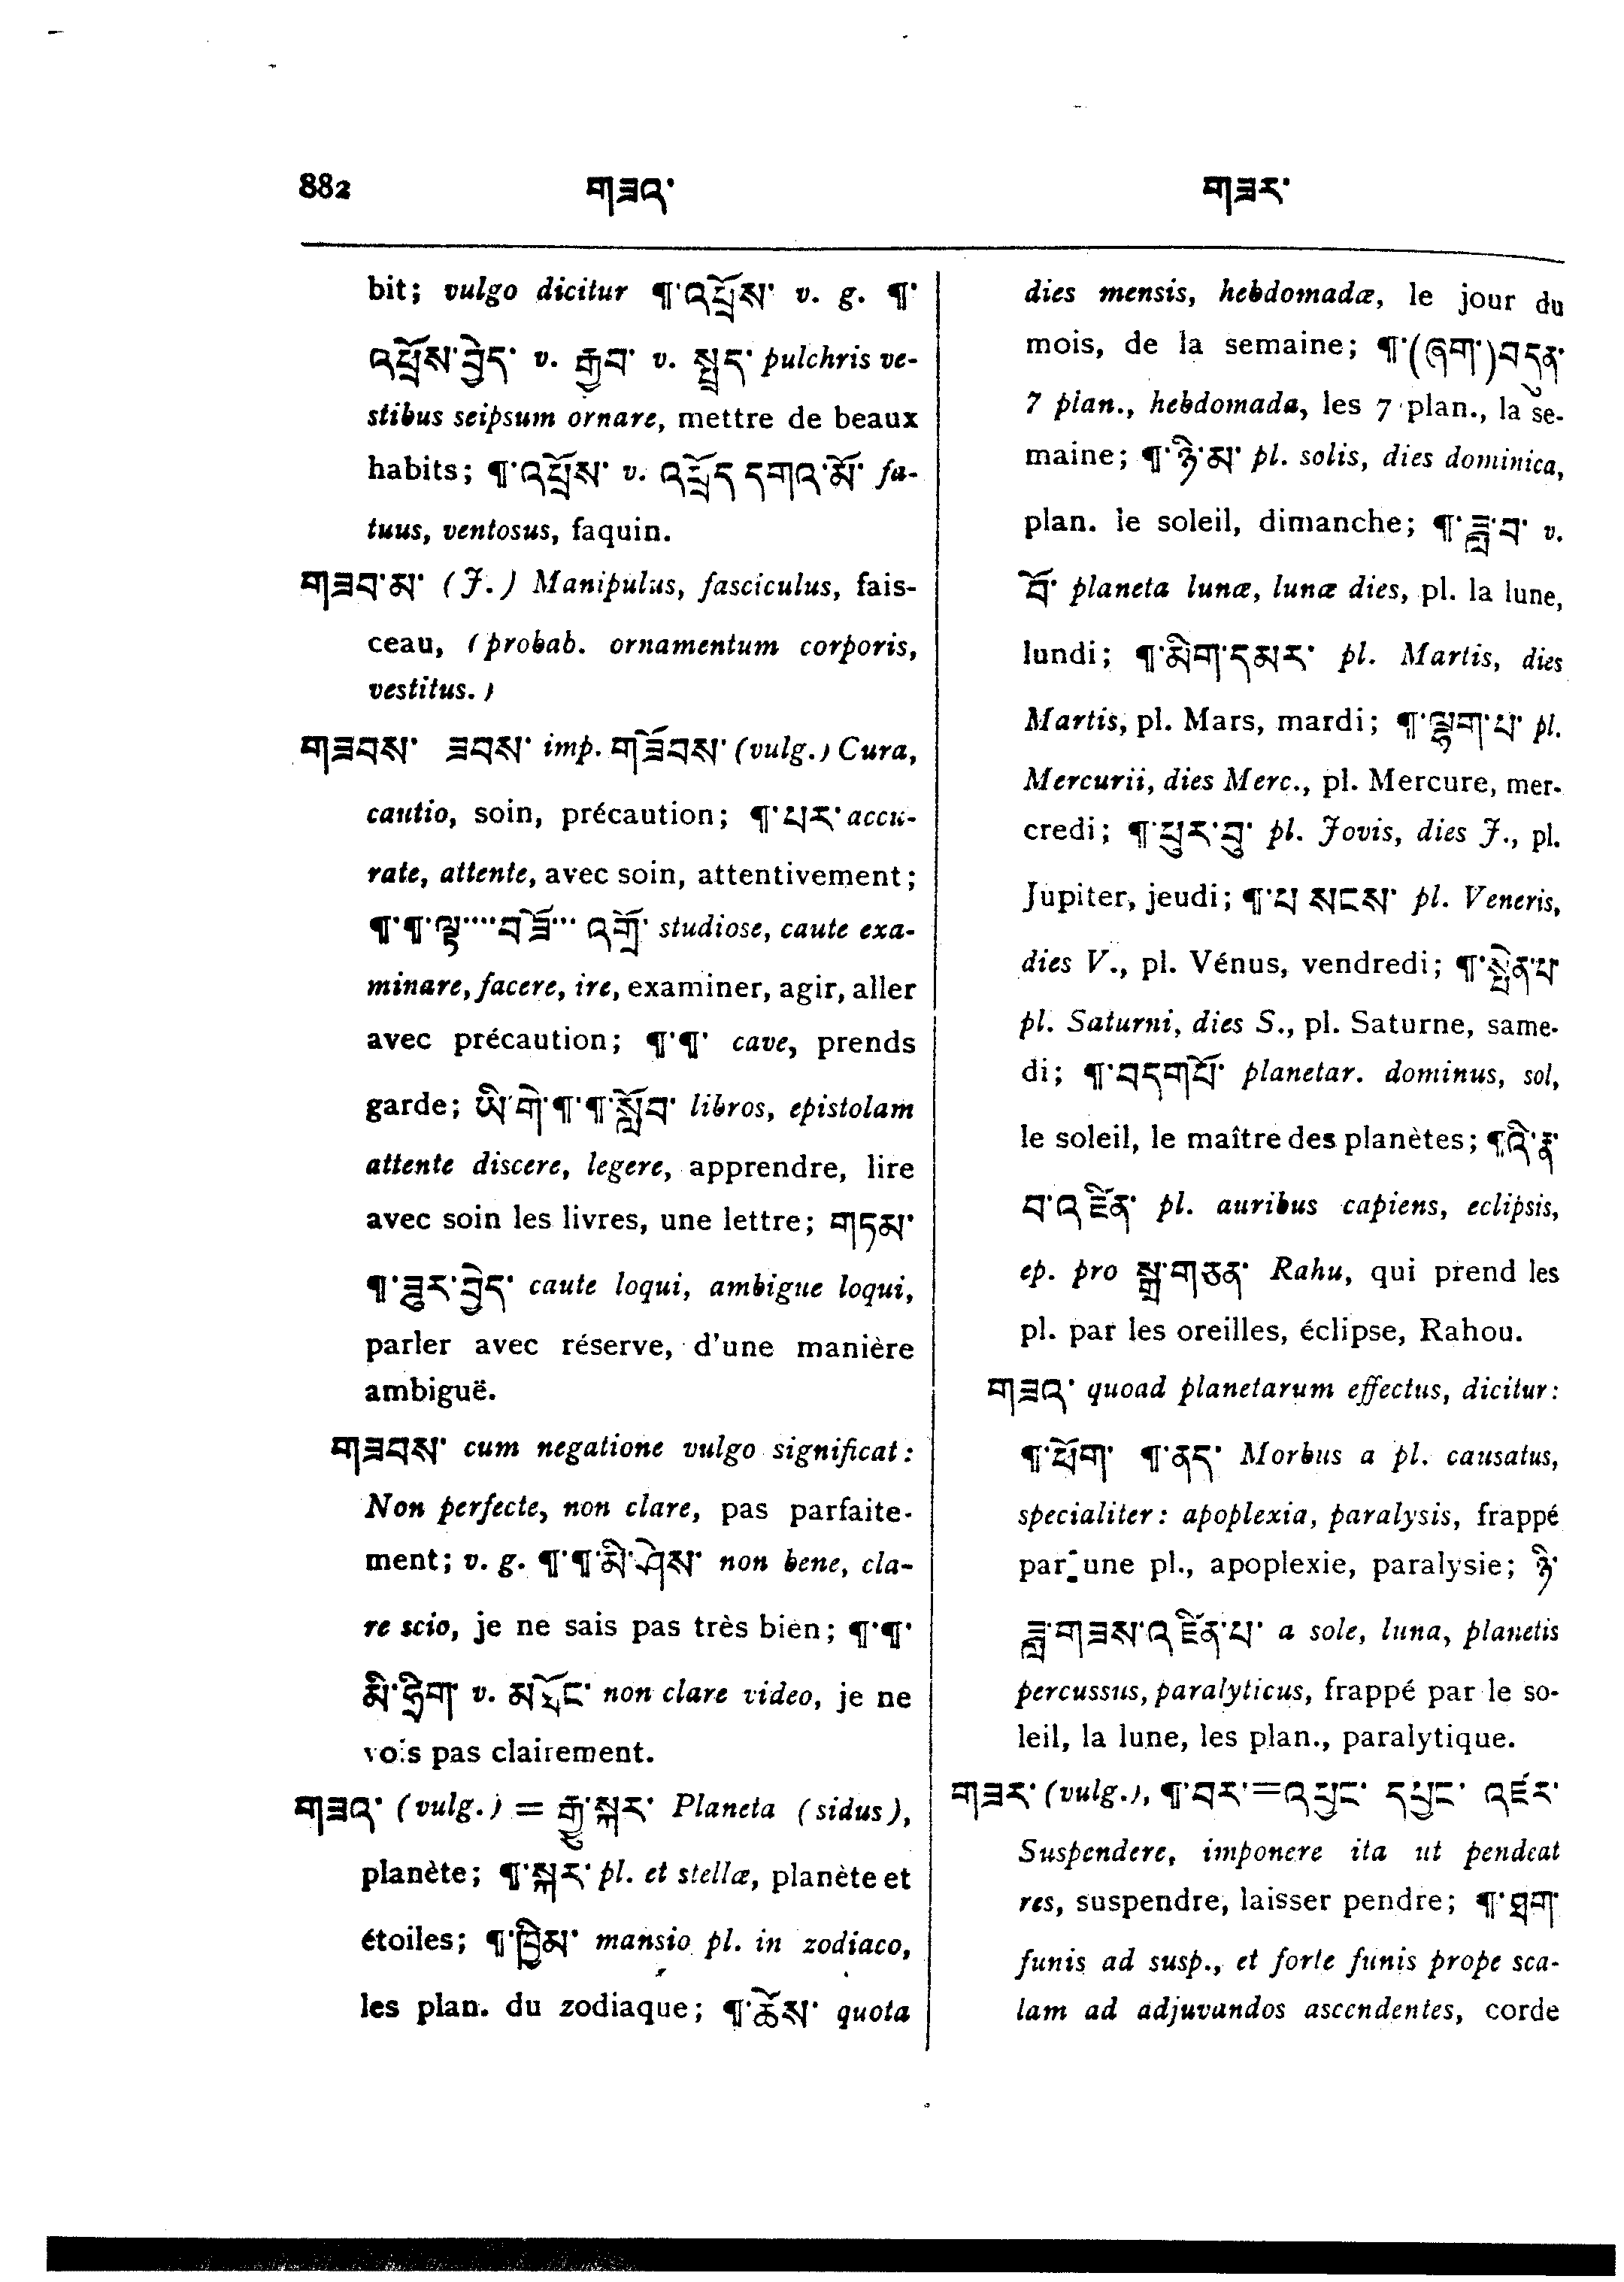 882 གཟའ་ གཟར་
bit; vulgo dicitur ¶་འཕྲོས་ v. g. ¶་
འཕྲོས་བྱེད་ v. རྒྱབ་ v. སྤྲད་ pulchris ve-
stibus seipsum ornare, mettre de beaux
habits; ¶་འཕྲོས་ v. འཕྲོད དགའ་མོ་ fa-
tuus, ventosus, faquin.
གཟབ་མ་ (J.) Manipulus, fasciculus, fais-
ceau, (probab. ornamentum corporis,
vestitus.)
གཟབས་ ཟབས་ imp. གཟོབས་ (vulg.) Cura,
cautio, soin, précaution; ¶་པར་ accu-
rate, attente, avec soin, attentivement;
¶་¶་ལྟ་... བཟོ་... འགྲོ་ studiose, caute exa-
minare, facere, ire, examiner, agir, aller
avec précaution; ¶་¶་ cave, prends
garde; ཡི་གེ་¶་¶་སློབ་ libros, epistolam
attente discere, legere, apprendre, lire
avec soin les livres, une lettre; གཏམ་
¶་ཟུར་བྱེད་ caute loqui, ambigue loqui,
parler avec réserve, d'une manière
ambiguë.
གཟབས་ cum negatione vulgo significat:
Non perfecte, non clare, pas parfaite-
ment; v. g. ¶་¶་མི་ཤེས་ non bene, cla-
re scio, je ne sais pas très bien; ¶་¶་
མི་ v. non clare video, je ne
vois pas clairement.
གཟའ་ (vulg.) = རྒྱུ་སྐར་ Planeta (sidus),
planète; ¶་སྐར་ pl. et stellæ, planète et
étoiles; ¶་ཁྲིམ་ mansio pl. in zodiaco,
les plan. du zodiaque; ¶་ཚོས་ quota
dies mensis, hebdomadæ, le jour du
mois, de la semaine; ¶་(ཞག་)བདུན་
7 plan., hebdomada, les 7 plan., la se-
maine; ¶་ཉི་མ་ pl. solis, dies dominica,
plan. le soleil, dimanche; ¶་ཟླ་བ་ v.
བོ་ planeta lunæ, lunæ dies, pl. la lune,
lundi; ¶་མིག་དམར་ pl. Martis, dies
Martis, pl. Mars, mardi; ¶་ལྷག་པ་ pl.
Mercurii, dies Merc., pl. Mercure, mer-
credi; ¶་ཕུར་བུ་ pl. Jovis, dies J., pl.
Jupiter, jeudi; ¶་པ སངས་ pl. Veneris,
dies V., pl. Vénus, vendredi; ¶་སྤེན་པ་
pl. Saturni, dies S., pl. Saturne, same-
di; ¶་བདགཔོ་ planetar. dominus, sol,
le soleil, le maître des planètes; ¶འི་རྣ་
བ་འཛིན་ pl. auribus capiens, eclipsis,
ep. pro སྒྲ་གཅན་ Rahu, qui prend les
pl. par les oreilles, éclipse, Rahou.
གཟའ་ quoad planetarum effectus, dicitur:
¶་ཕོག་ ¶་ནད་ Morbus a pl. causatus,
specialiter: apoplexia, paralysis, frappé
par une pl., apoplexie, paralysie; ཉི་
ཟླ་གཟས་འཛིན་པ་ a sole, luna, planetis
percussus, paralyticus, frappé par le so-
leil, la lune, les plan., paralytique.
གཟར་ (vulg.), ¶་བར་=འཕྱང་ དཔྱང་ འཛར་
Suspendere, imponere ita ut pendeat
res, suspendre, laisser pendre; ¶་ཐག་
funis ad susp., et forte funis prope sca-
lam ad adjuvandos ascendentes, corde